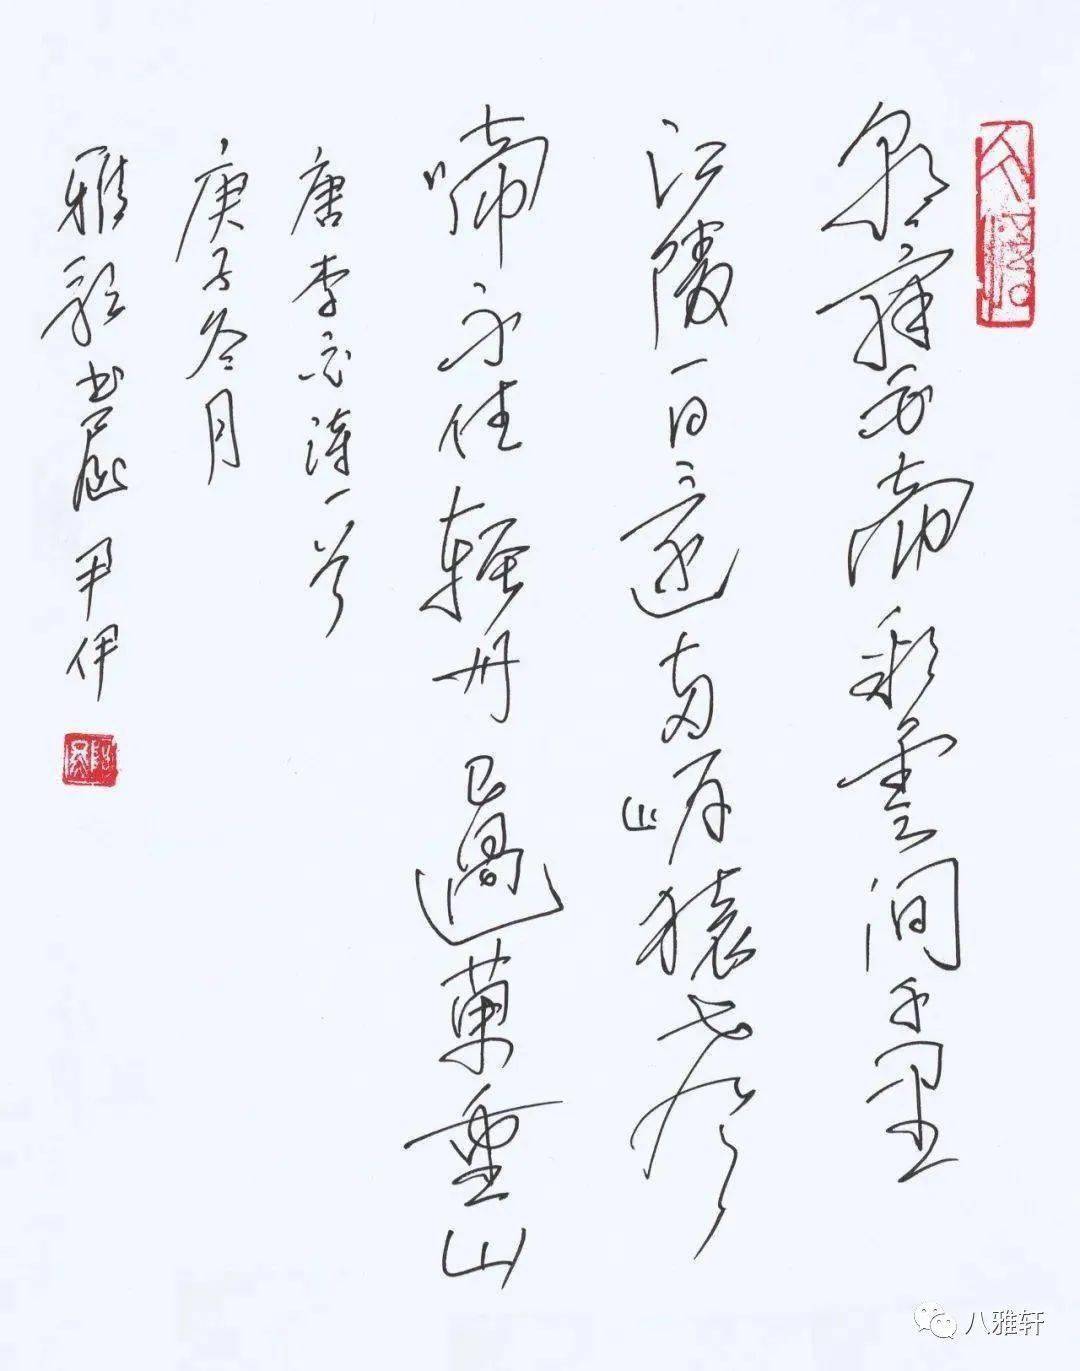 朝辞白帝彩雲间千里
江陵一日還两岸猿声
啼不住輕舟已過萬重山
唐李白诗一首
庚子冬月
雅 书 尹伊
八雅轩